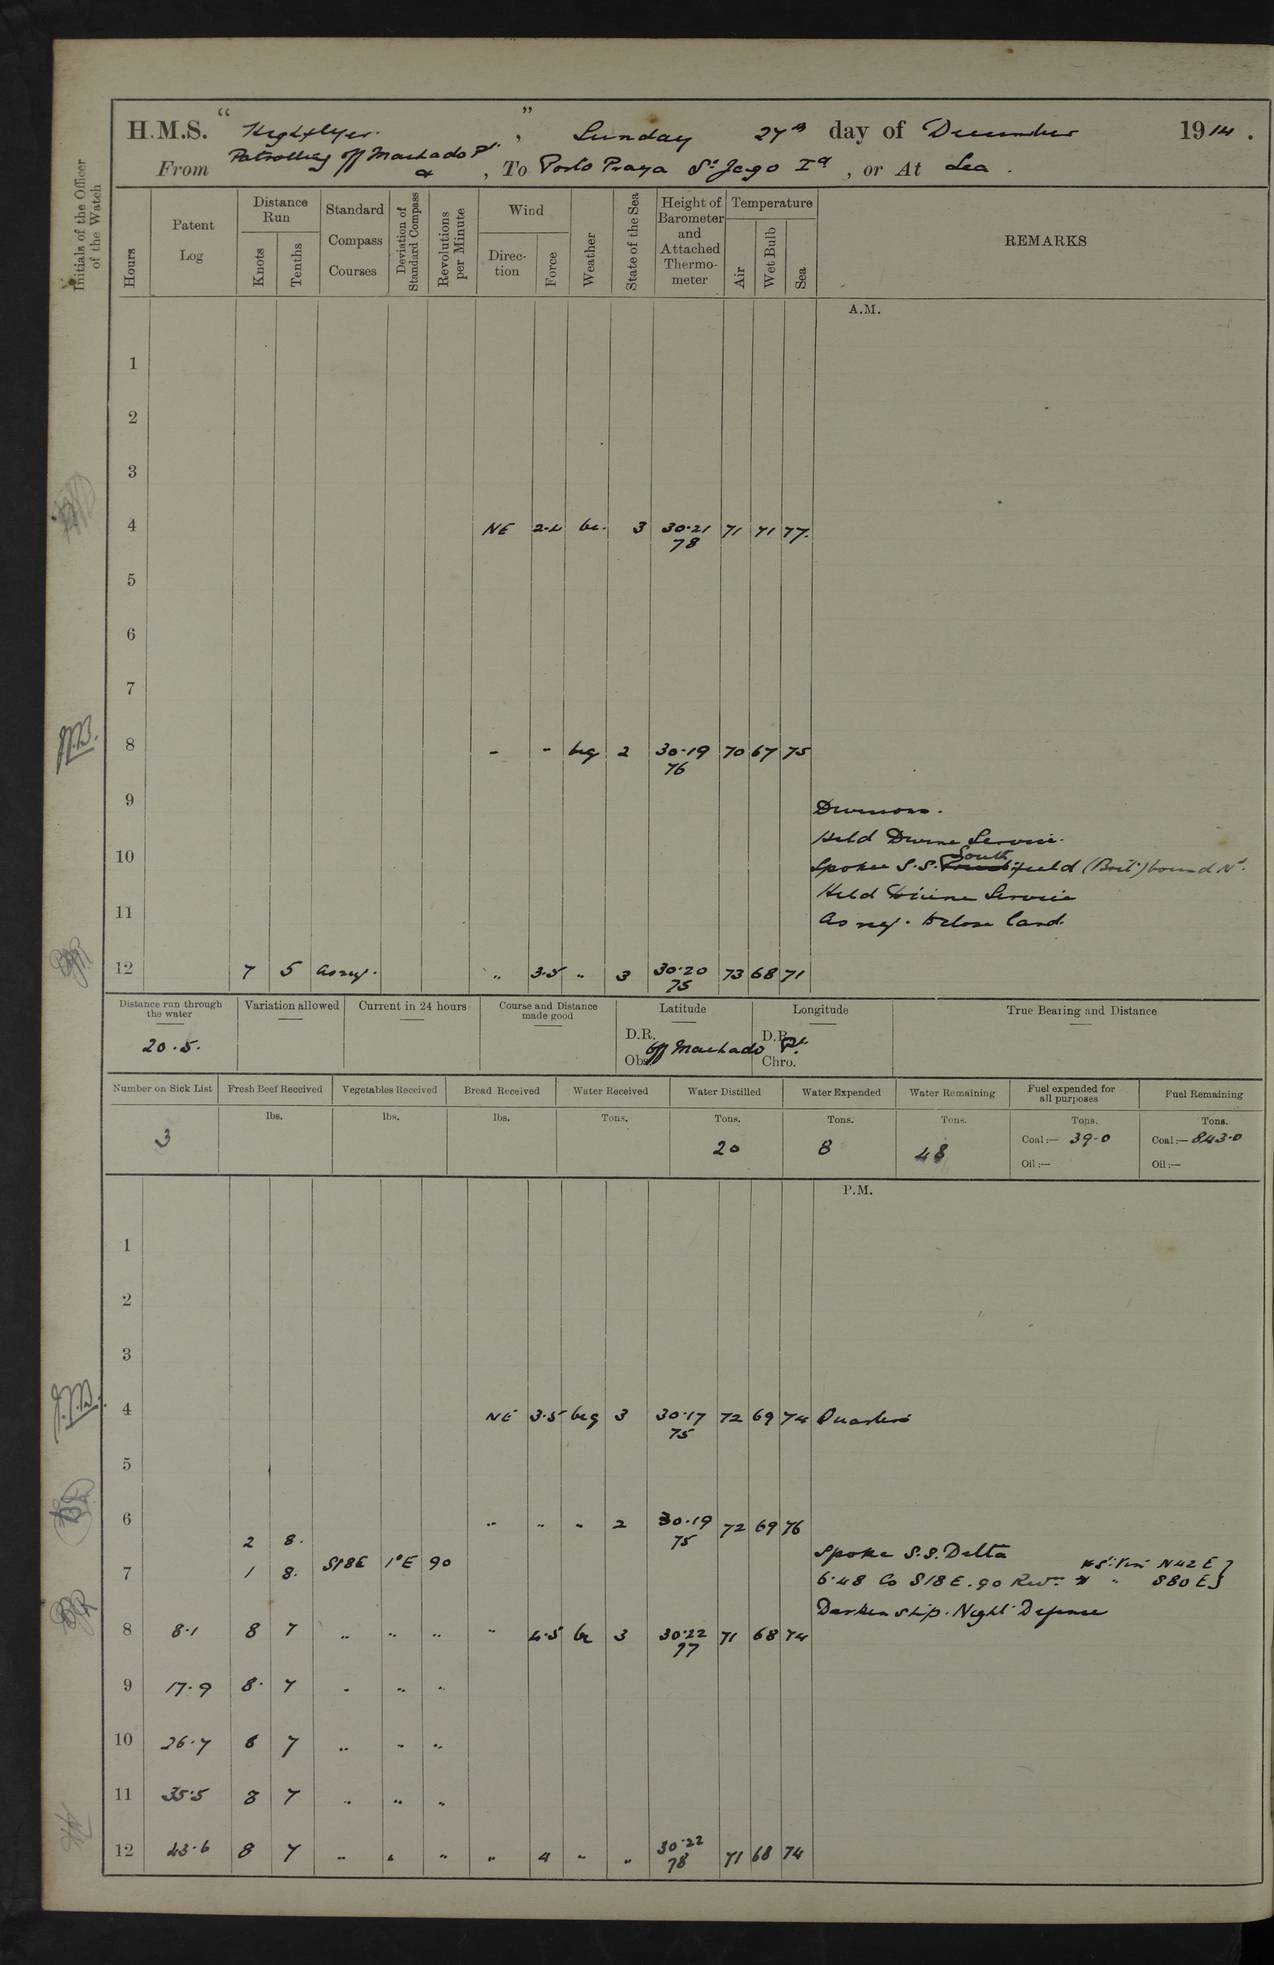 H.M.S. " Highflyer. " , Sunday 27th day of December 1914.
From Patrolling off Machado Pt. & , To Porto Praya St Jago Id , or At Sea .
Initials of the Officer of the Watch
Hours
Patent Log
Distance Run
Knots
Tenths
Standard Compass Courses
Deviation of Standard Compass
Revolutions per Minute
Wind
Direction
Force
Weather
State of the Sea
Height of Barometer and Attached Thermometer
Temperature
Air
Wet Bulb
Sea
REMARKS
A.M.
1
2
3
4 NE 2.4 bc. 3 30.21 78 71 71 77.
5
6
7
J.B. 8 - - bcg 2 30.19 76 70 67 75
9 Divisions.
Held Divine Service.
10 Spoke S.S. Southfield (Brit.) bound Nd.
Held Divine Service
11 As req. to close land.
12 7 5 as req. " 3.5 " 3 30.20 75 73 68 71
Distance run through the water
Variation allowed
Current in 24 hours
Course and Distance made good
Latitude
Longitude
True Bearing and Distance
20.5.
D.R. D.R.
Obs. off Machado Pt. Chro.
Number on Sick List
Fresh Beef Received
Vegetables Received
Bread Received
Water Received
Water Distilled
Water Expended
Water Remaining
Fuel expended for all purposes
Fuel Remaining
lbs. lbs. lbs. Tons. Tons. Tons. Tons. Tons. Tons.
3 20 8 48 Coal:— 39.0 Coal:— 843.0
Oil:— Oil:—
P.M.
1
2
3
4 NE 3.5 bcg 3 30.17 75 72 69 74 Quarters
5
6 " " " 2 30.19 75 72 69 76
2 8.
Spoke S.S. Delta
7 1 8. S18E 1°E 90 6.48 Co S18E. 90 Revs N42E
" S80E }
Darken ship. Night Defence
8 8.1 8 7 " " " " 4.5 bc 3 30.22 77 71 68 74
9 17.9 8. 7 " " "
10 26.7 8 7 " " "
11 35.5 8 7 " " "
12 43.6 8 7 " " " " 4 " " 30.22 78 71 68 74